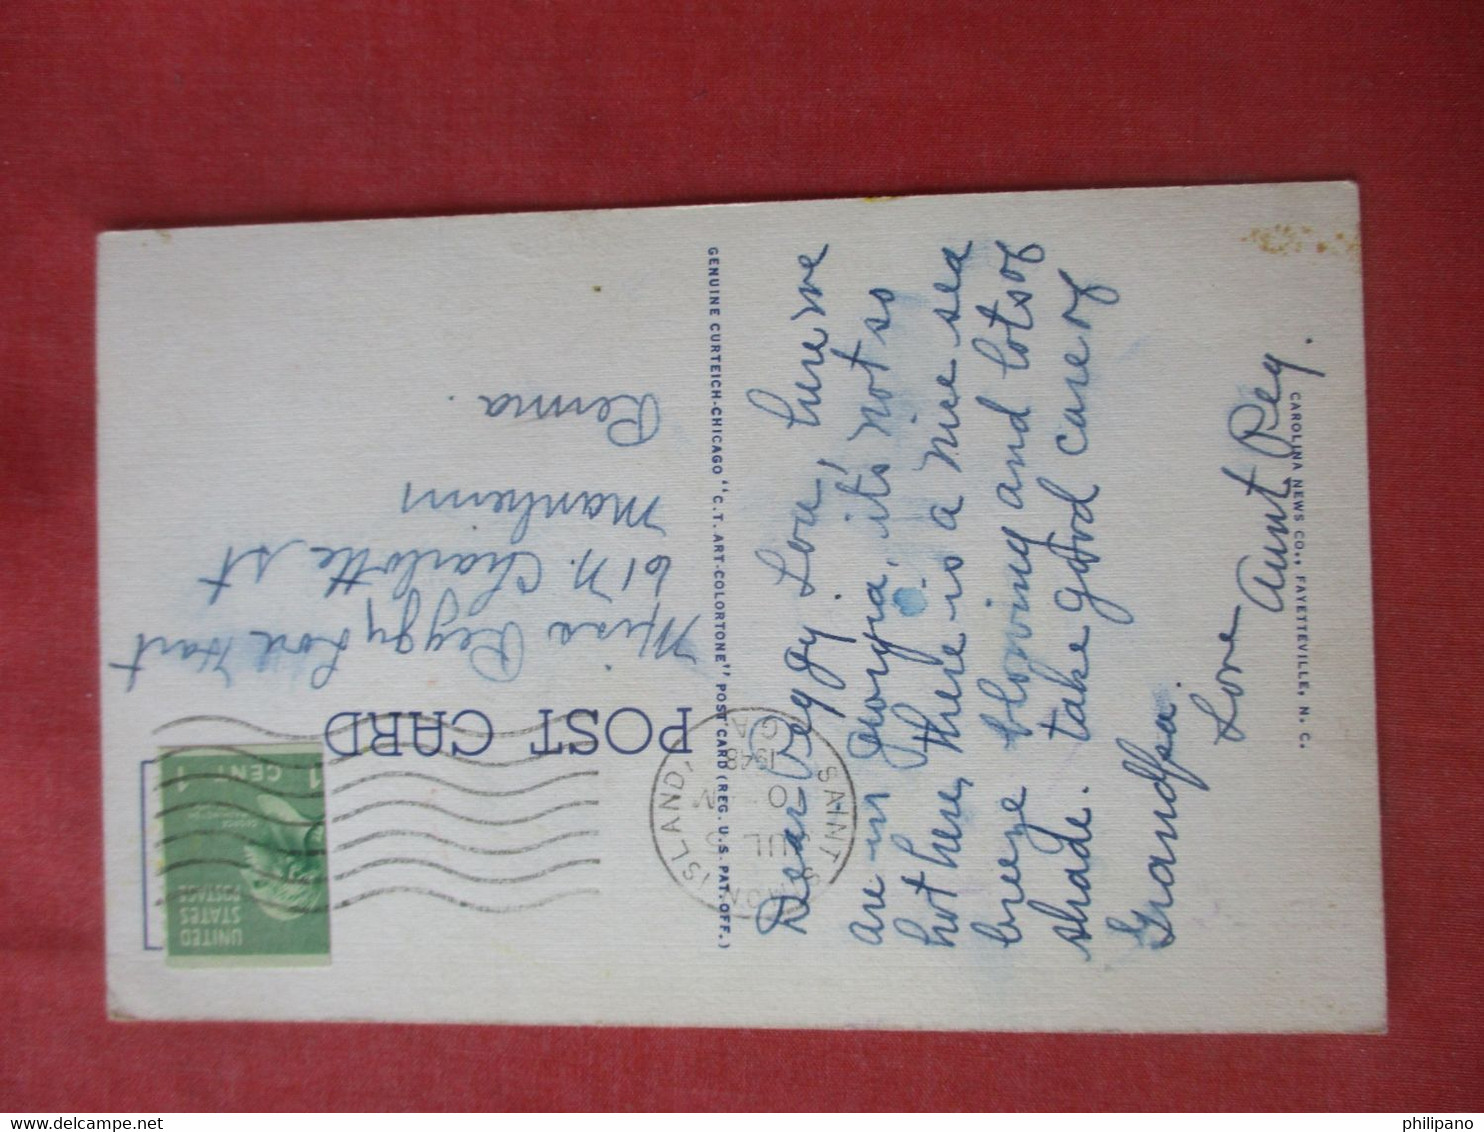 Dear Peggy Lou, here we
are in Georgia, its not so
hot here, there is a nice sea
breeze blowing and lots of
shade. take good care of
Grandpa.
Love
Aunt Peg.
CAROLINA NEWS CO., FAYETTEVILLE, N. C.
GENUINE CURTEICH-CHICAGO "C.T. ART-COLORTONE" POST CARD (REG. U.S. PAT. OFF.)
POST CARD
SAINT SIMONS ISLAND,
GA.
1948
UNITED
STATES
POSTAGE
1 CENT 1
Miss Peggy Lou Hart
61 N. Charlotte St
Manheim
Penna.
philipano